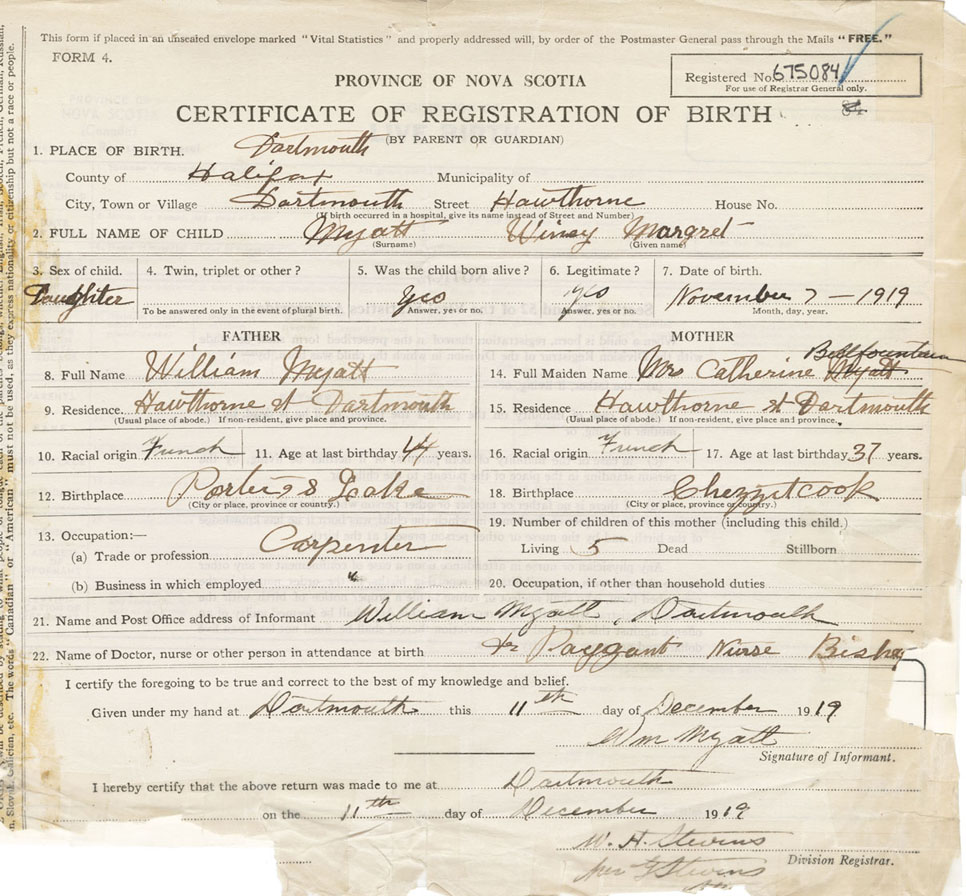 This form if placed in an unsealed envelope marked "Vital Statistics" and properly addressed will, by order of the Postmaster General pass through the Mails "FREE."
FORM 4.
PROVINCE OF NOVA SCOTIA
Registered No. 675084
For use of Registrar General only.
CERTIFICATE OF REGISTRATION OF BIRTH
84
(BY PARENT OR GUARDIAN)
1. PLACE OF BIRTH. Dartmouth
County of Halifax Municipality of
City, Town or Village Dartmouth Street Hawthorne House No.
(If birth occurred in a hospital, give its name instead of Street and Number)
2. FULL NAME OF CHILD Myatt Winey Margret
(Surname) (Given name)
3. Sex of child. 4. Twin, triplet or other? 5. Was the child born alive? 6. Legitimate? 7. Date of birth.
Daughter yes yes November 7 - 1919
To be answered only in the event of plural birth. Answer, yes or no. Answer, yes or no. Month, day, year.
FATHER MOTHER
Bellfountain
8. Full Name William Myatt 14. Full Maiden Name Mrs Catherine Myatt
9. Residence. Hawthorne st Dartmouth 15. Residence Hawthorne st Dartmouth
(Usual place of abode.) If non-resident, give place and province. (Usual place of abode.) If non-resident, give place and province.
10. Racial origin French 11. Age at last birthday 44 years. 16. Racial origin French 17. Age at last birthday 37 years.
12. Birthplace Lake 18. Birthplace Chezzitcook
(City or place, province or country.) (City or place, province or country.)
13. Occupation:— 19. Number of children of this mother (including this child.)
(a) Trade or profession Carpenter Living 5 Dead Stillborn
(b) Business in which employed " 20. Occupation, if other than household duties
21. Name and Post Office address of Informant William Myatt, Dartmouth
22. Name of Doctor, nurse or other person in attendance at birth Dr Payzant Nurse Bishop
I certify the foregoing to be true and correct to the best of my knowledge and belief.
Given under my hand at Dartmouth this 11th day of December 1919
Wm Myatt
Signature of Informant.
I hereby certify that the above return was made to me at Dartmouth
on the 11th day of December 1919
W. H. Stevens
Division Registrar.
Stevens